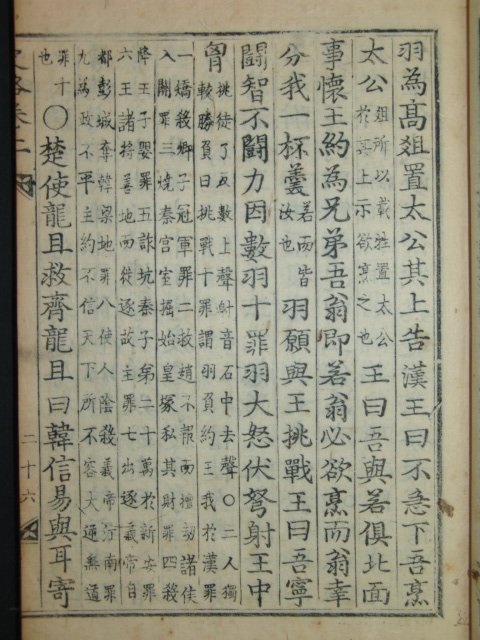 羽為髙爼置太公其上告漢王曰不急下吾烹
太公
爼所以載牲置太公
於其上示欲烹之也
王曰吾與若俱北面
事懷王約為兄弟吾翁即若翁必欲烹而翁幸
分我一杯羹
若而皆
汝也
羽願與王挑戰王曰吾寧
鬪智不鬪力因數羽十罪羽大怒伏弩射王中
胷
挑徒了反數上聲射音石中去聲○二人獨
較勝負曰挑戰十罪謂羽負約王我於漢罪
一矯殺卿子冠軍罪二救趙不報而擅刼諸侯
入關罪三燒秦宮室掘始皇塚私其財罪四殺
降王子嬰罪五詐坑秦子弟二十萬於新安罪
六王諸將善地而徙逐故主罪七出逐義帝自
都彭城奪韓梁地罪八使人陰殺義帝江南罪
九為政不平主約不信天下所不容大逆無道
罪十
也
○楚使龍且救齊龍且曰韓信易與耳寄
略卷二
二十六